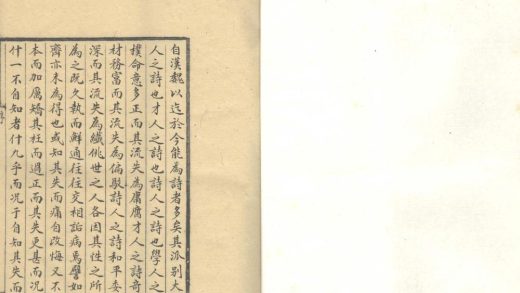 自漢魏以迄於今能為詩者多矣其派別大
人之詩也才人之詩也詩人之詩也學人之
樸命意多正而其流失為膚庸才人之詩奇
材務富而其流失為偏駁詩人之詩和平委
深而其流失為纖佻世之人各因其性之所
為之既久執而鮮通往往交相詬病焉譬如
齊亦未為得也或知其失而痛自改悔又不
本而加厲矯其枉而過正而其失更甚而况
什一不自知者什九乎而况于自知其失而
序